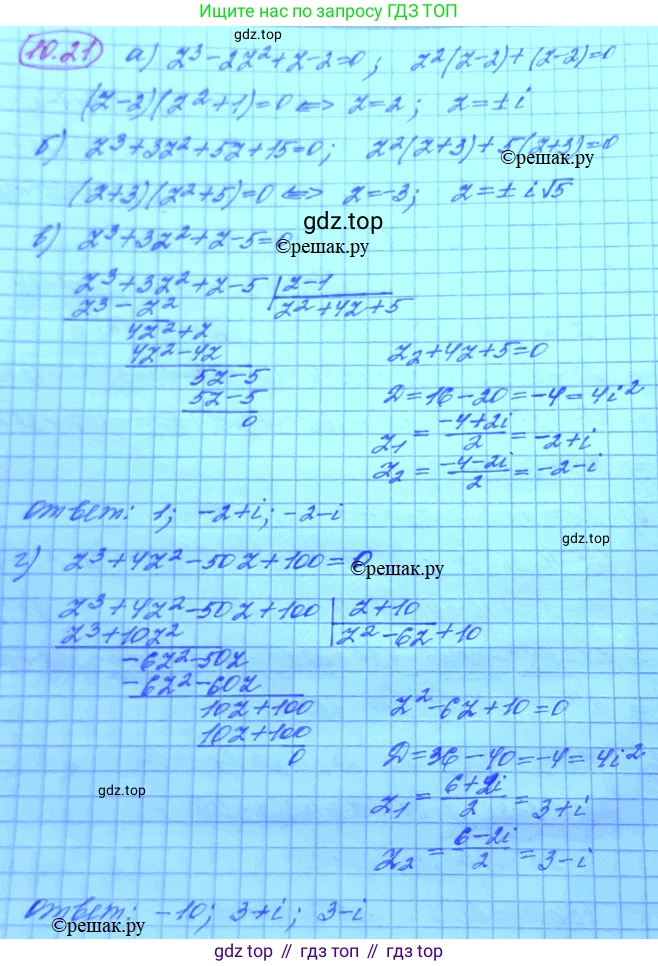 Ищите нас по запросу ГДЗ ТОП
10.21 а) z³-2z²+z-2=0; z²(z-2)+(z-2)=0
(z-2)(z²+1)=0 <=> z=2; z=±i
б) z³+3z²+5z+15=0; z²(z+3)+5(z+3)=0
©решак.ру
(z+3)(z²+5)=0 <=> z=-3; z=±i√5
gdz.top
в) z³+3z²+z-5=0
©решак.ру
z³+3z²+z-5 | z-1
z³-z² z²+4z+5
4z²+z
4z²-4z
z₂+4z+5=0
5z-5
5z-5
0
D=16-20=-4=4i²
z₁=(-4+2i)/2=-2+i
z₂=(-4-2i)/2=-2-i
ответ: 1; -2+i; -2-i
gdz.top
г) z³+4z²-50z+100=0
©решак.ру
z³+4z²-50z+100 | z+10
z³+10z² z²-6z+10
-6z²-50z
-6z²-60z
10z+100
10z+100
0
z²-6z+10=0
D=36-40=-4=4i²
gdz.top
z₁=(6+2i)/2=3+i
z₂=(6-2i)/2=3-i
ответ: -10; 3+i; 3-i
©решак.ру
gdz top // гдз топ // gdz.top